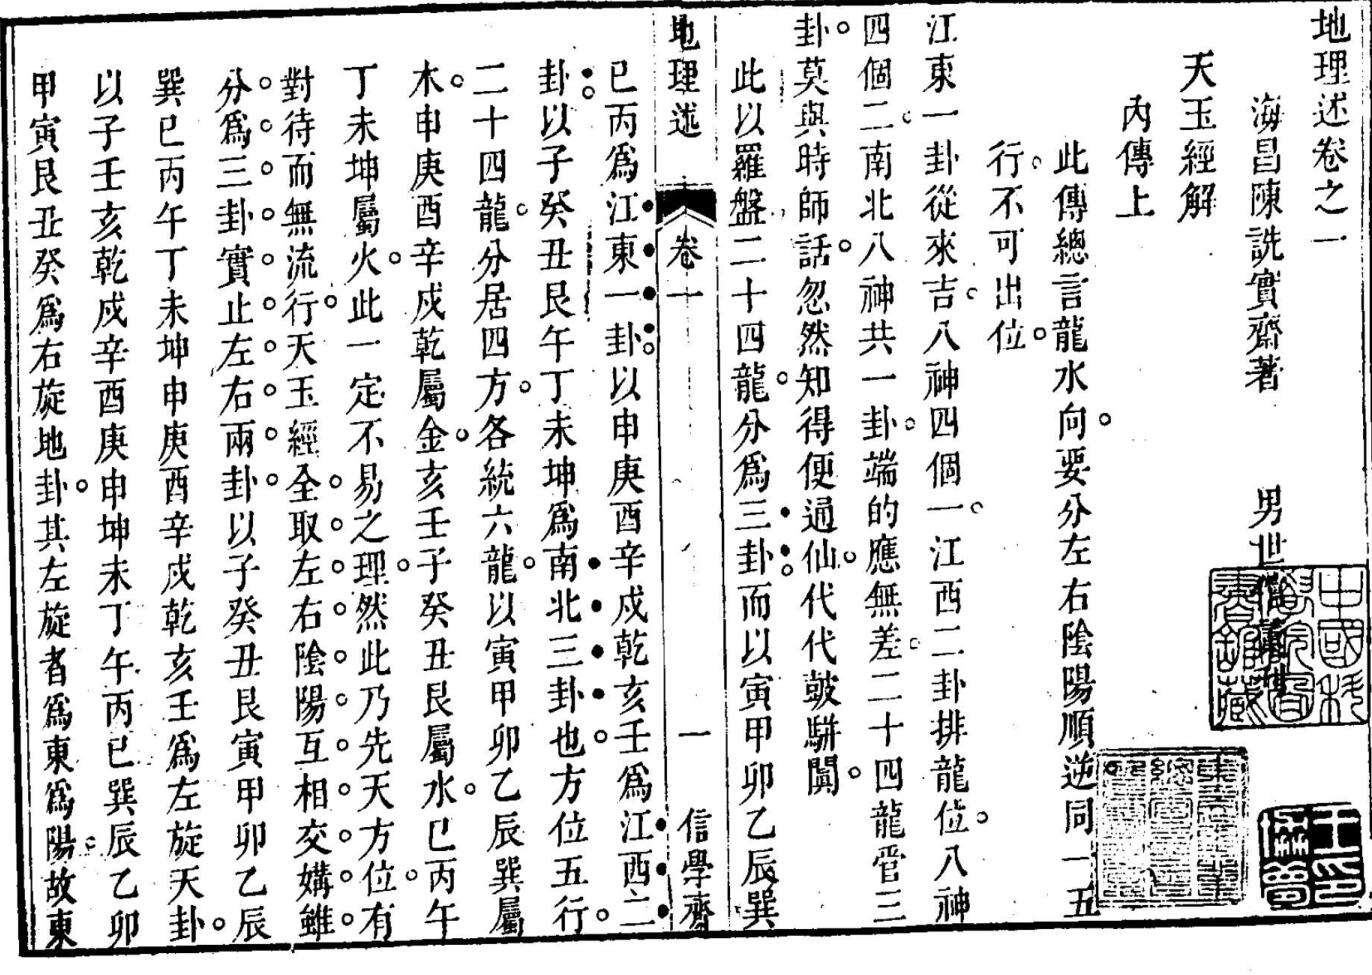 地理述卷之一
海昌陳詵實齋著　男世
天玉經解
內傳上
此傳總言龍水向要分左右陰陽順逆同一五
行不可出位
江東一卦從來吉八神四個一江西二卦排龍位八神
四個二南北八神共一卦端的應無差二十四龍管三
卦莫與時師話忽然知得便通仙代代鼓駢闐
此以羅盤二十四龍分爲三卦而以寅甲卯乙辰巽
地理述　卷一　一　信學齋
巳丙爲江東一卦以申庚酉辛戍乾亥壬爲江西二
卦以子癸丑艮午丁未坤爲南北三卦也方位五行
二十四龍分居四方各統六龍以寅甲卯乙辰巽屬
木申庚酉辛戍乾屬金亥壬子癸丑艮屬水巳丙午
丁未坤屬火此一定不易之理然此乃先天方位有
對待而無流行天玉經全取左右陰陽互相交媾雖
分爲三卦實止左右兩卦以子癸丑艮寅甲卯乙辰
巽巳丙午丁未坤申庚酉辛戍乾亥壬爲左旋天卦
以子壬亥乾戍辛酉庚申坤未丁午丙巳巽辰乙卯
甲寅艮丑癸爲右旋地卦其左旋者爲東爲陽故東